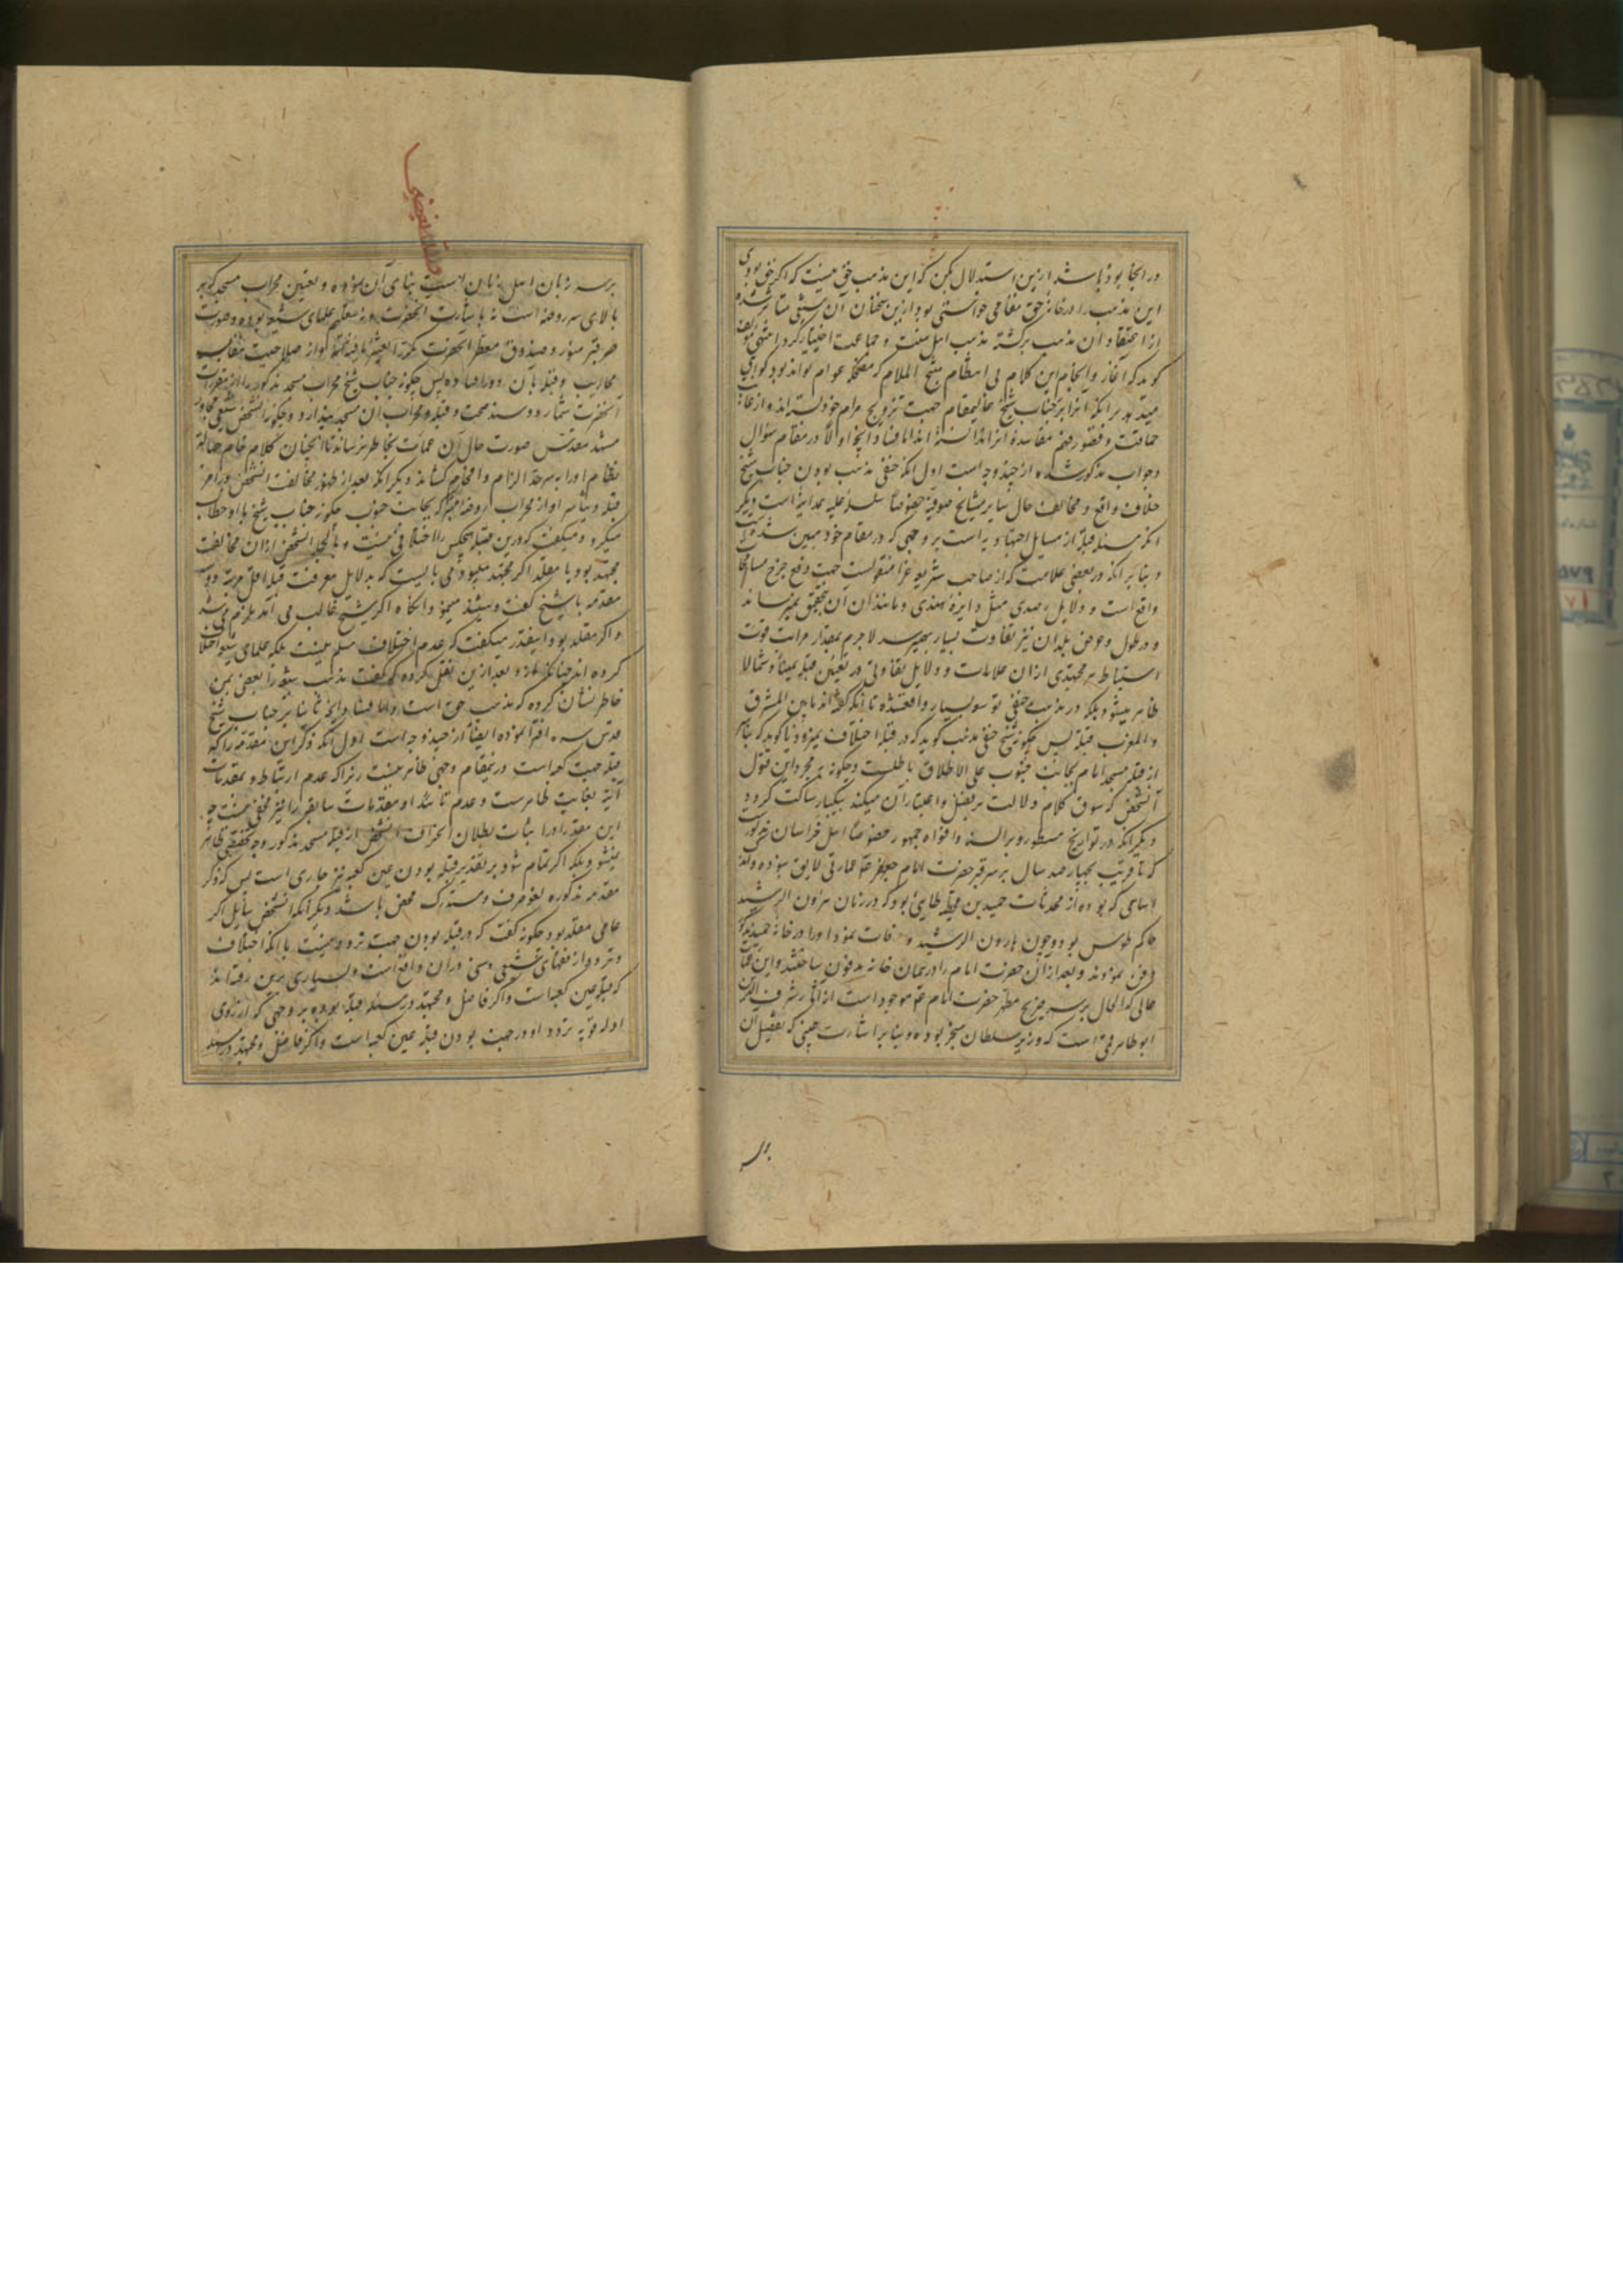 در انجا بوده باشد ازین استدلال بکن که این مذهب حق نیست که اگر حق بودی
این مذهب را در خانه حق مقامی خواستی بود ازین سخنان آن سنی متاثر شده
از اعتقاد آن مذهب برگشته مذهب اهل سنت و جماعت اختیار کرد انتهی مؤلف
گوید که آغاز و انجام این کلام بی انتظام شیخ الملام که مضحکه عوام تواند بود گواهی
میدهد بر آنکه آنرا بر جناب شیخ عالیمقام جهت ترویج مرام خود بسته اند و از غایت
حماقت و قصور فهم مفاسد آنرا ندانسته اند اما فساد آنچه اولا در مقام سؤال
و جواب مذکور شده از چند وجه است اول آنکه حنفی مذهب بودن جناب شیخ
خلاف واقع و مخالف حال سایر مشایخ صوفیه خصوصا سلسله علیه همدانیه است دیگر
آنکه مسئله قبله از مسایل اجتهادیه است بر وجهی که در مقام خود مبین شده
و بنا بر آنکه در بعضی علامت که از صاحب شریعه غرا منقولست جهت دفع حرج مسامحه
واقع است و دلایل رصدی مثل دایره هندی و مانند آن آن تحقیق نمیرساند
و در طول و عرض بلدان نیز تفاوت بسیار بهم میرسد لاجرم بمقدار مراتب قوت
استنباط هر مجتهدی از آن علامات و دلایل تفاوتی در تعیین قبله یمینا و شمالا
ظاهر میشود بلکه در مذهب حنفی توسع بسیار واقعشده تا آنکه گفته اند ما بین المشرق
و المغرب قبلة پس چگونه شیخ حنفی مذهب گوید که در قبله اختلاف نمیرود و یا گوید که تیاسر
از قبله مسجد امام بجانب جنوب علی الاطلاق باطلست و چگونه بمجرد این قول
آنشخص که سوق کلام دلالت بر فضل و اعتبار آن میکند بیکبار ساکت گردد
دیگر آنکه در تواریخ مسطور و بر السنه و افواه جمهور خصوصا اهل خراسان مذکور است
که تا قریب بچهار صد سال بر سر قبر حضرت امام عمارتی لایق نبوده و آنچه
اساسی که بوده از محدثات حمید بن قحطبه طایی بود که در زمان هرون الرشید
حاکم طوس بود و چون هارون الرشید وفات نمود او را در خانه حمید مذکور
دفن نمودند و بعد از آن حضرت امام را در همان خانه مدفون ساختند و این عمارت
عالی که الحال بر سر ضریح مطهر حضرت امام موجود است از آثار شرف الدین
ابو طاهر قمی است که وزیر سلطان سنجر بوده و بنا بر اشارت غیبی که تفصیل آن
بر سر
بر سر زبان اهل زمان است بنای آن نموده و تعیین محراب مسجد که بر
بالای سر روضه است نه باشارت آنحضرت و نه بتعلیم علمای شیعه بوده و صورت
هر قبر منور و صندوق معطر آنحضرت
محاریب و قبله بآن رو در افتاده پس چگونه جناب شیخ محراب مسجد مذکور را از مقررات
آنحضرت شمارد و سند صحت قبله و محراب آن مسجد پندارد و چگونه آنشخص شیعی مجاور
مشهد مقدس صورت حال آن عمارت بخاطر نرساند تا آنچنان کلام خام جهالة
نظام او را بسرحد الزام و افحام کشاند دیگر آنکه بعد از ظهور مخالفت آنشخص در امر
قبله و تیاسر او از محراب روضه متبرکه بجانب جنوب چگونه جناب شیخ با او خطاب
میکرد و میگفت که درین قبله هیچکس را اختلافی نیست و بالجمله آنشخص از آن مخالفت
مجتهد بود یا مقلد اگر مجتهد میبود می بایست که بدلایل معرفت قبله اقل مرتبه دو سه
مقدمه با شیخ گفت و شنید میبود و آنگاه اگر شیخ غالب می آمد ملزم می شد
و اگر مقلد بود اینقدر میگفت که عدم اختلاف مسلم نیست بلکه علمای شیعه اختلاف
کرده اند چنانکه او بعد ازین نقل کرده که گفت مذهب شیعه را بعضی بمن
خاطر نشان کرده که مذهب حق است و اما فساد آنچه ثانیا بر جناب شیخ
قدس سره افترا نموده ایضا از چند وجه است اول آنکه ذکر این مقدمه را که
قبله جهت کعبه است درینمقام وجهی ظاهر نیست زیرا که عدم ارتباط و بمقدمات
آتیه بغایت ظاهرست و عدم تاثیر او مقدمات سابقه را نیز مخفی نیست چه
این مقدمه را در اثبات بطلان انحراف آنشخص از قبله مسجد مذکور وجه تحققی ظاهر
نمیشود بلکه اگر تمام شود بر تقدیر قبله بودن عین کعبه نیز جاری است پس ذکر
مقدمه مذکوره لغو صرف و مستدرک محض باشد دیگر آنکه آنشخص سایل اگر
عامی مقلد بود چگونه گفت که در قبله بودن جهت تردد نیست با آنکه اختلاف
و تردد از فقهای شیعی و سنی در آن واقع است و بسیاری برین رفته اند
که قبله عین کعبه است و اگر فاضل و مجتهد در مسئله قبله بوده بر وجهی که از روی
ادله قویه تردد او در جهت بودن قبله عین کعبه است و اگر فاضل و مجتهد در مسئله